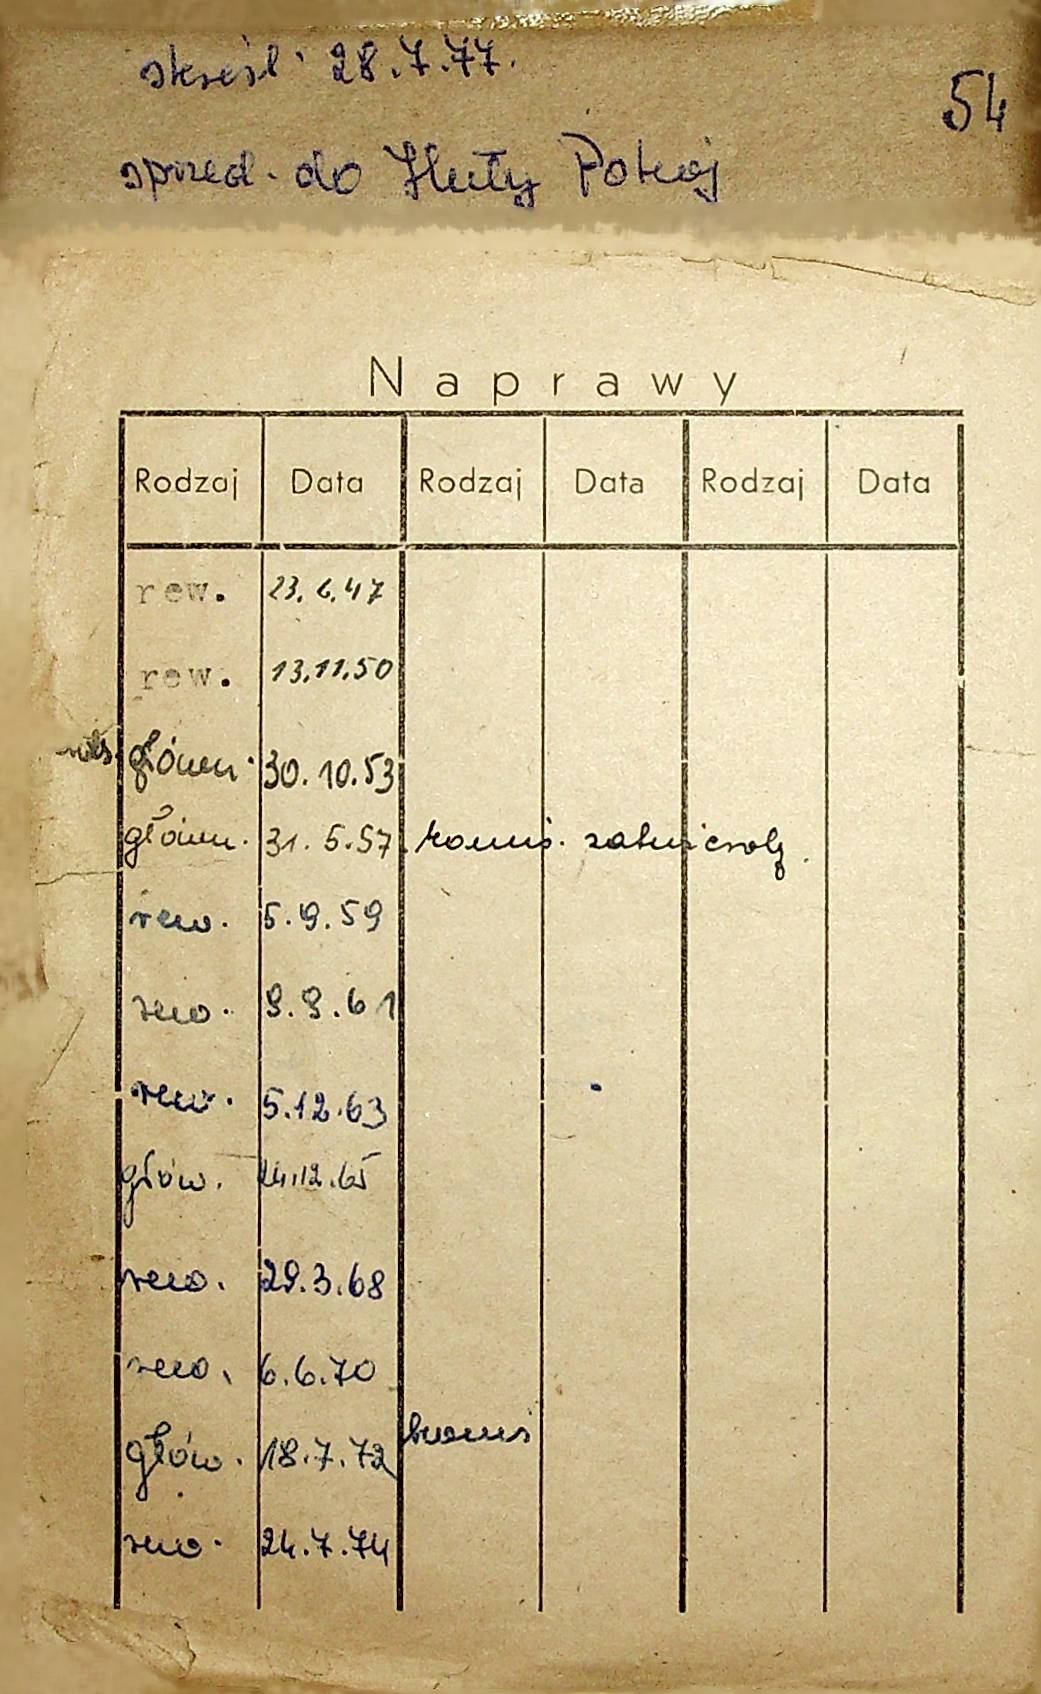 skreśl. 28.7.77.
54
sprzed. do Huty Pokój
Naprawy
Rodzaj Data Rodzaj Data Rodzaj Data
rew. 23.6.47
rew. 13.11.50
główn. 30.10.53
główn. 31.5.57
rew. 5.9.59
rew. 9.9.61
rew. 5.12.63
głów. 24.12.65
rew. 29.3.68
rew. 6.6.70
głów. 18.7.72
rew. 24.7.74